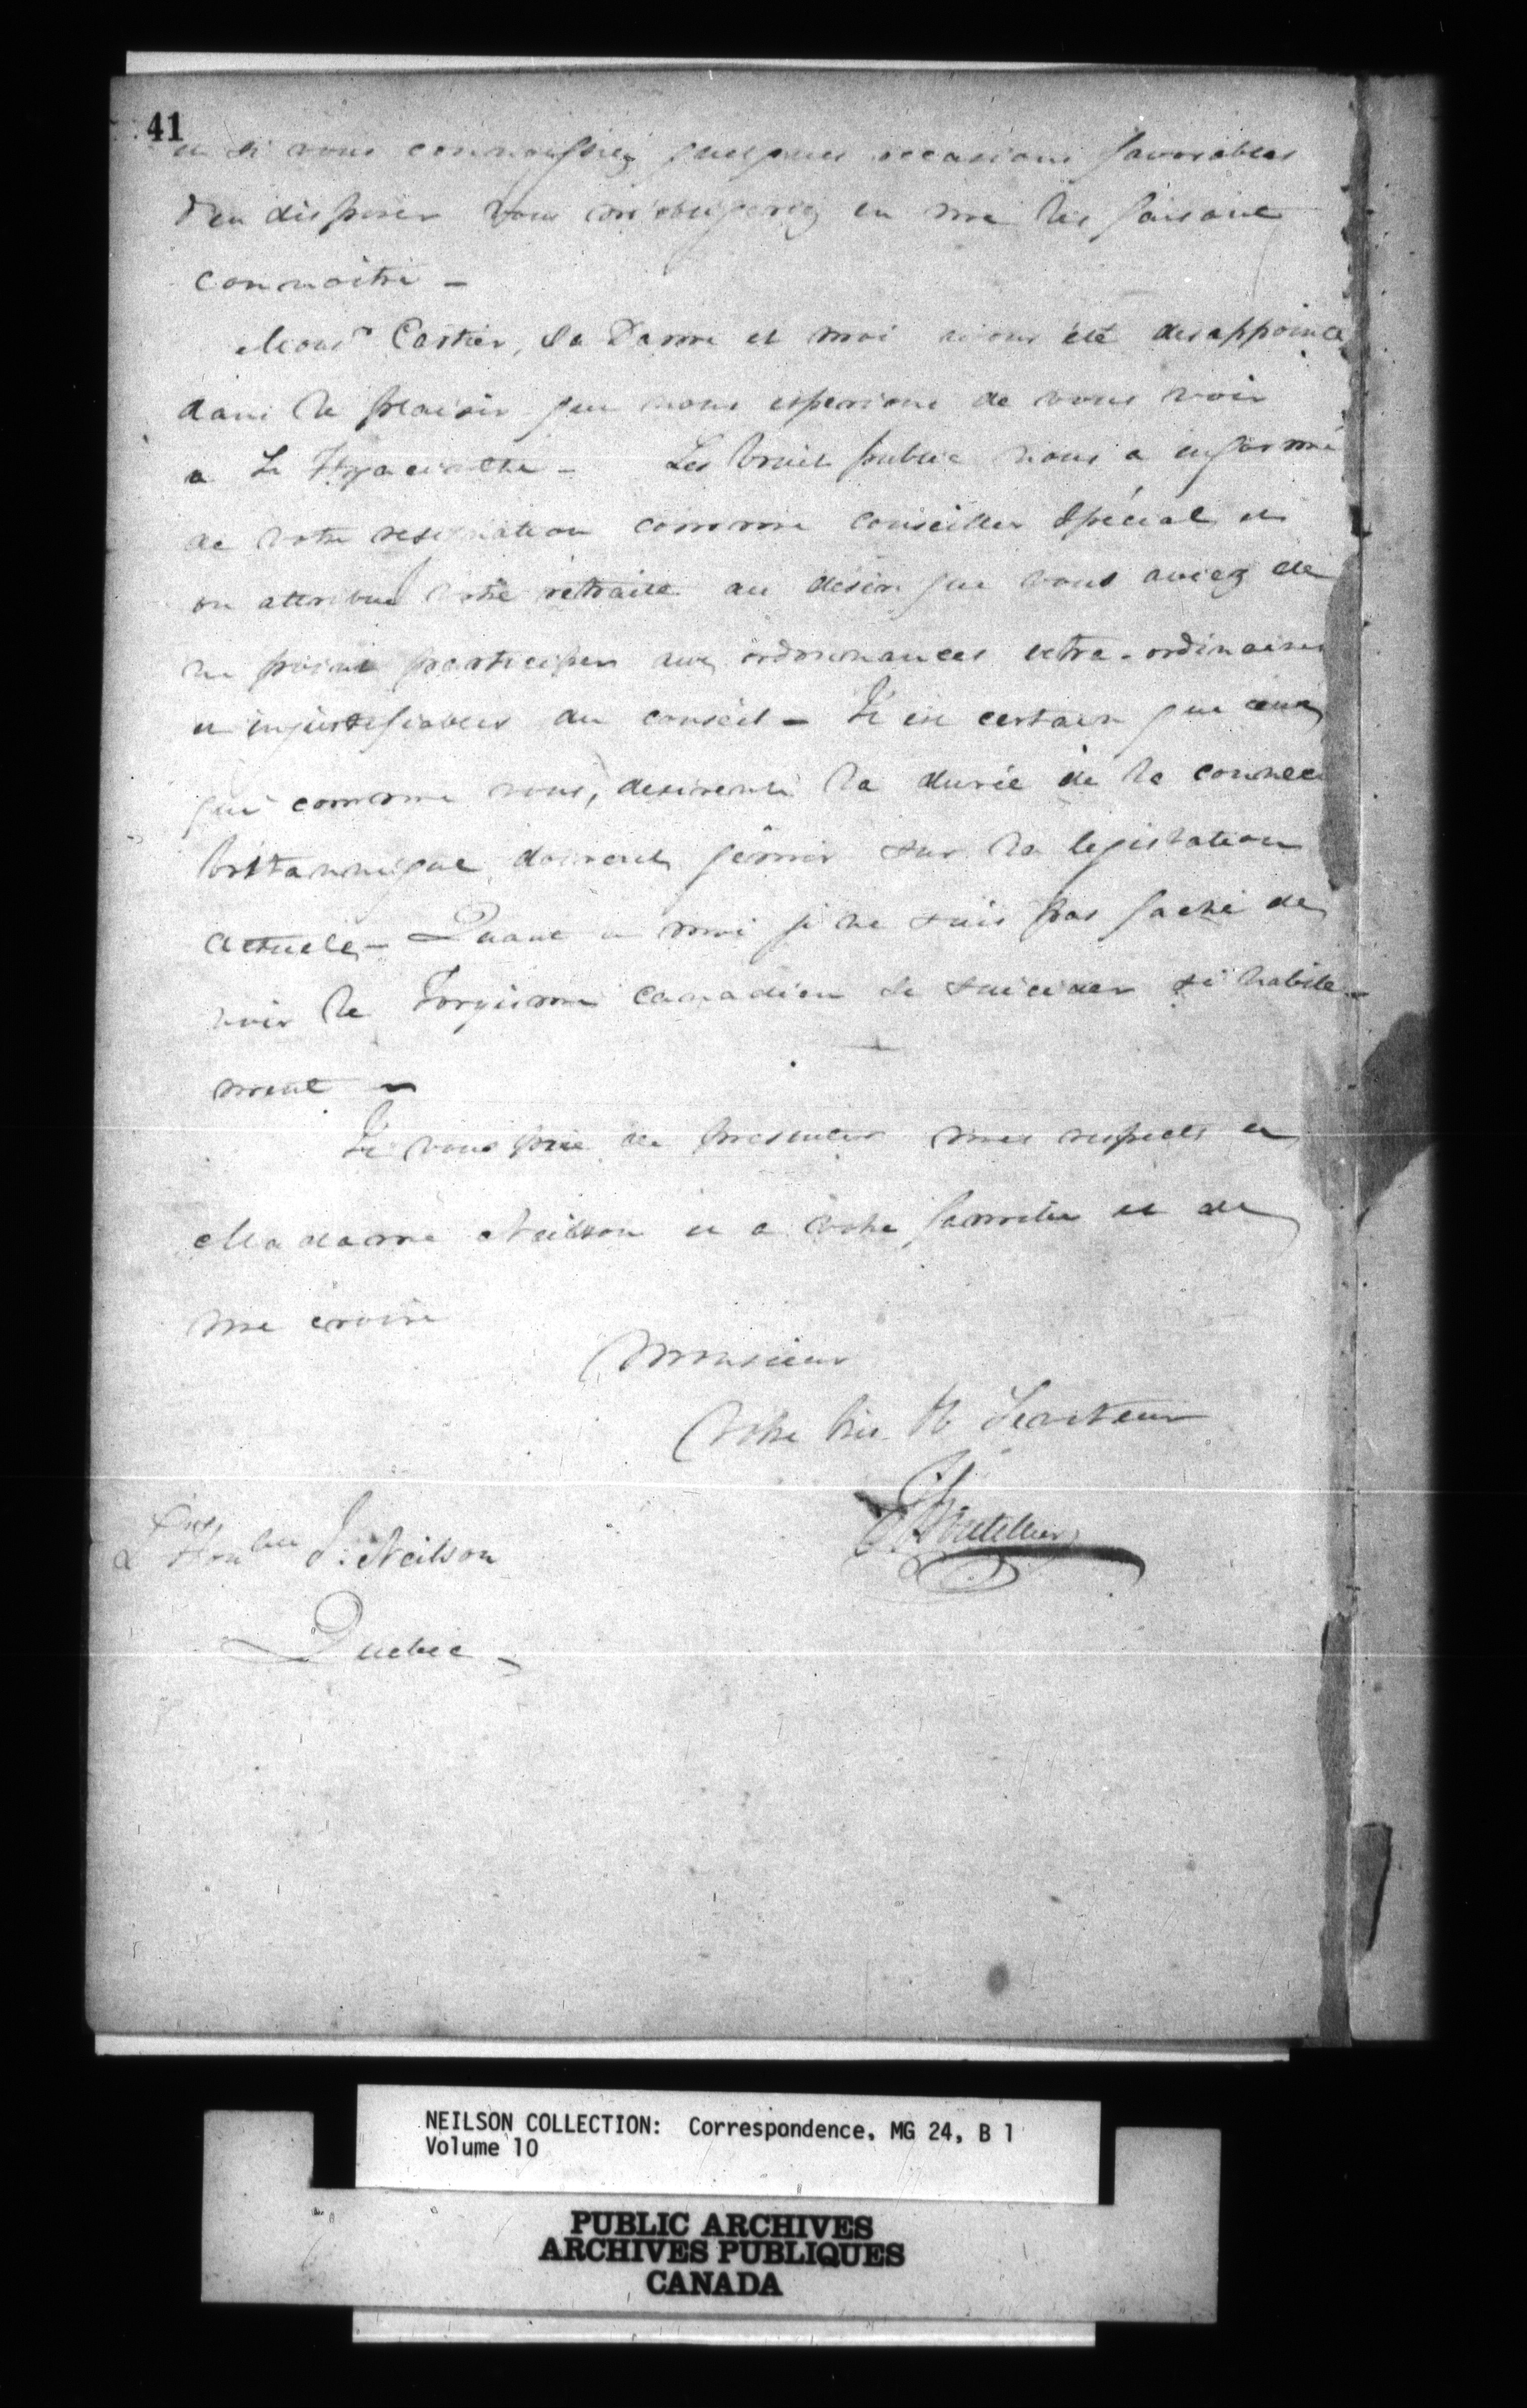 41
et si vous connoissiez quelques occasions favorables
d'en disposer vous m'obligeriez en me les faisant
connoitre -
Monsr Cartier, Sa Dame et moi avons été desappointé
dans le plaisir que nous esperions de vous voir
a St Hyacinthe - Les bruit public nous a informé
de votre resignation comme conseiller Spécial et
on attribue votre retraite au désir que vous aviez de
ne point participer aux ordonnances extra-ordinaires
et injustifiables du conseil - Il est certain que ceux
qui comme vous, desirent la durée de la connec
britannique, doivent gémir sur la legislation
actuelle - Quant a moi je ne suis pas faché de
voir le Toryisme canadien se suicider si habile-
ment -
Je vous prie de presenter mes respects a
Madame Neilson et a votre famille et de
me croire
Monsieur
Votre tres H Serviteur
T Boutillier
L'Honble J. Neilson
Quebec -
NEILSON COLLECTION: Correspondence, MG 24, B 1
Volume 10
PUBLIC ARCHIVES
ARCHIVES PUBLIQUES
CANADA